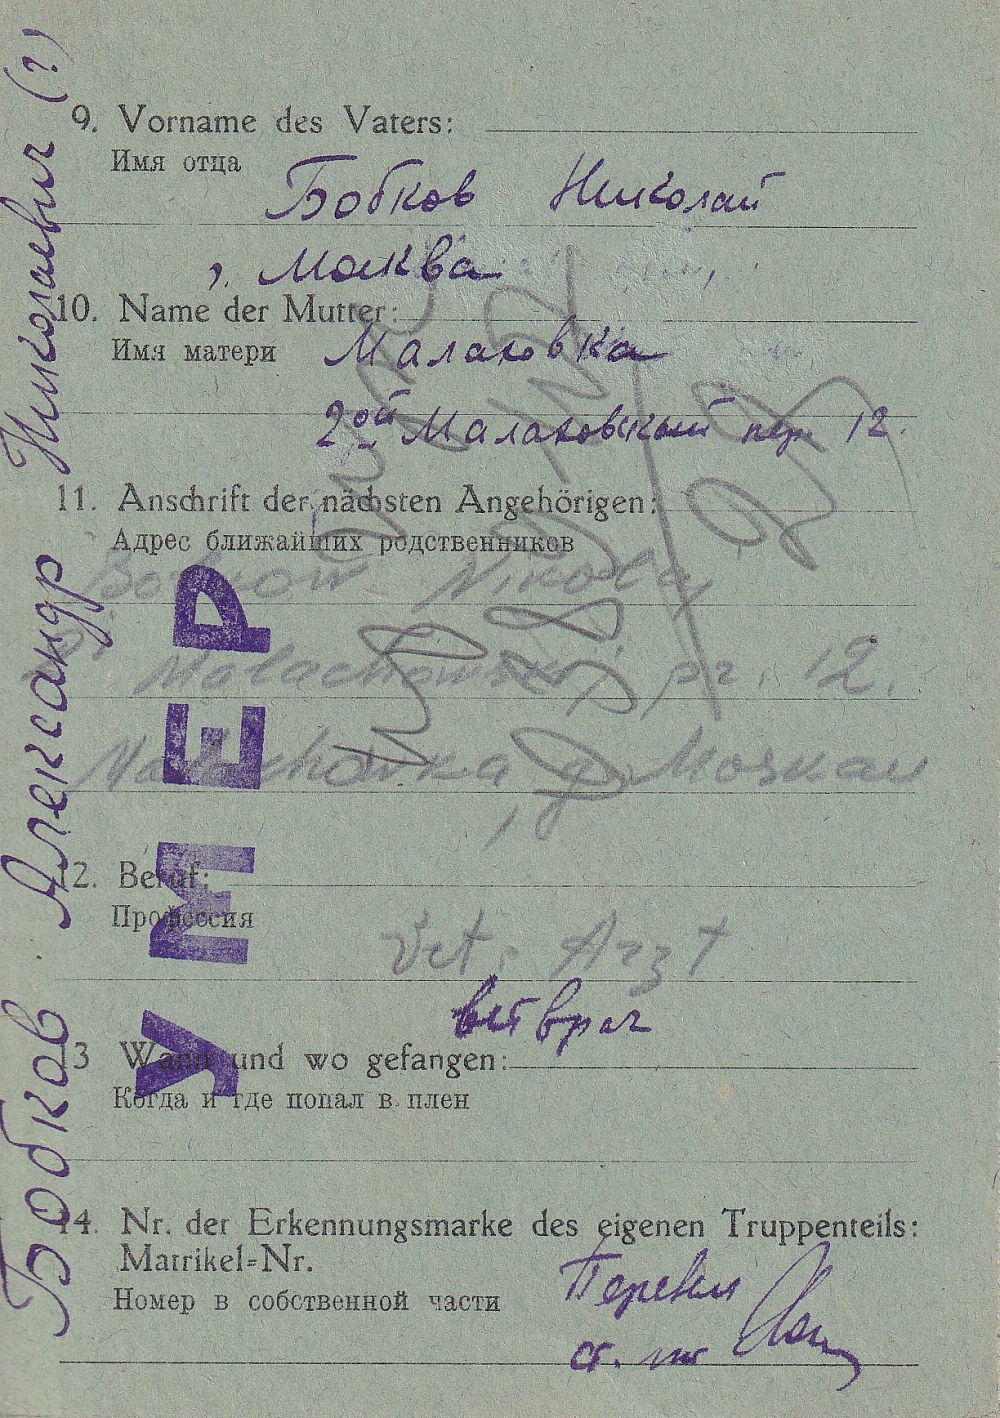 9. Vorname des Vaters:
Имя отца
Бобков Николай
, Москва
10. Name der Mutter:
Имя матери
Малаховка
2ой Малаховский пер. 12.
11. Anschrift der nächsten Angehörigen:
Адрес ближайших родственников
Bobkow Nikolaj
Malachowskij pr. 12.
Malachowka, g. Moskau
12. Beruf:
Профессия
Vet. Arzt
вет врач
13 Wann und wo gefangen:
Когда и где попал в плен
14. Nr. der Erkennungsmarke des eigenen Truppenteils:
Matrikel-Nr.
Номер в собственной части
Перевел
Бобков Александр Николаевич (?)
УМЕР